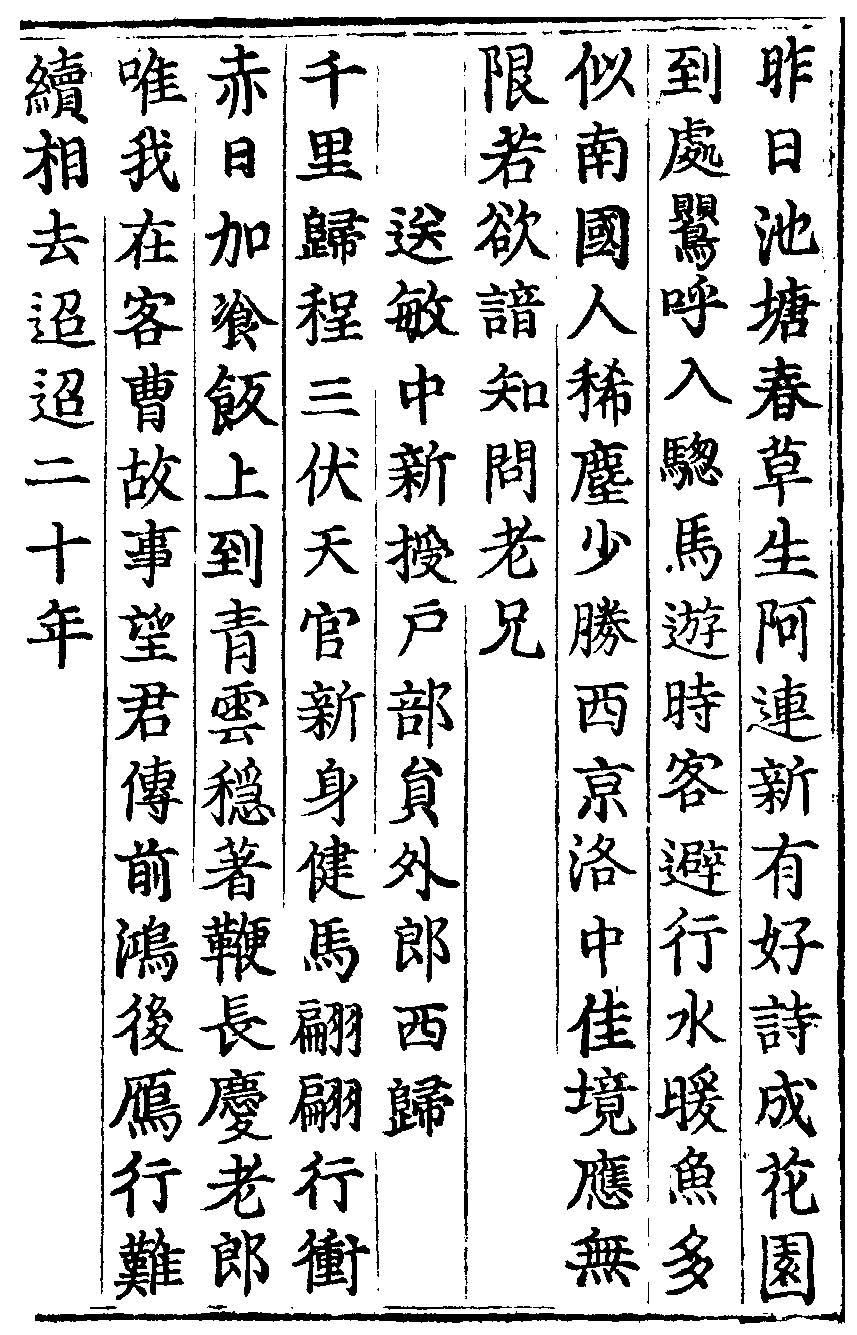 昨日池塘春草生阿連新有好詩成花園
到處鸎呼入驄馬遊時客避行水暖魚多
似南國人稀塵少勝西京洛中佳境應無
限若欲諳知問老兄
送敏中新授戶部員外郎西歸
千里歸程三伏天官新身健馬翩翩行衝
赤日加飡飯上到青雲穩著鞭長慶老郎
唯我在客曹故事望君傳前鴻後鴈行難
續相去迢迢二十年